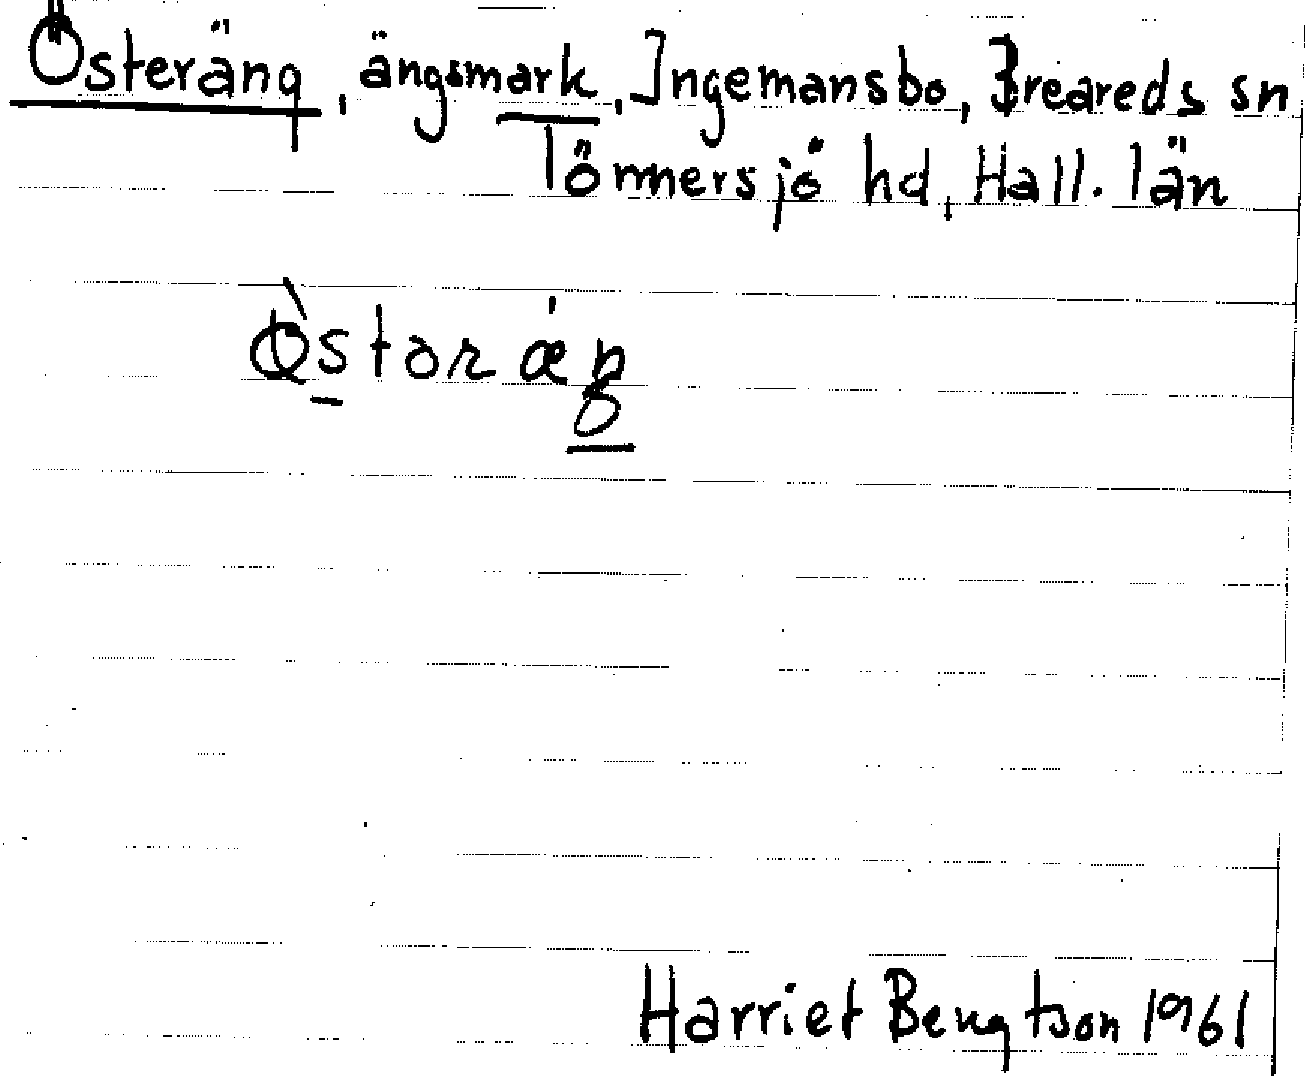 Österäng, ängsmark, Ingemansbo, Breareds sn
Tönnersjö hd, Hall. län
Harriet Bengtson 1961